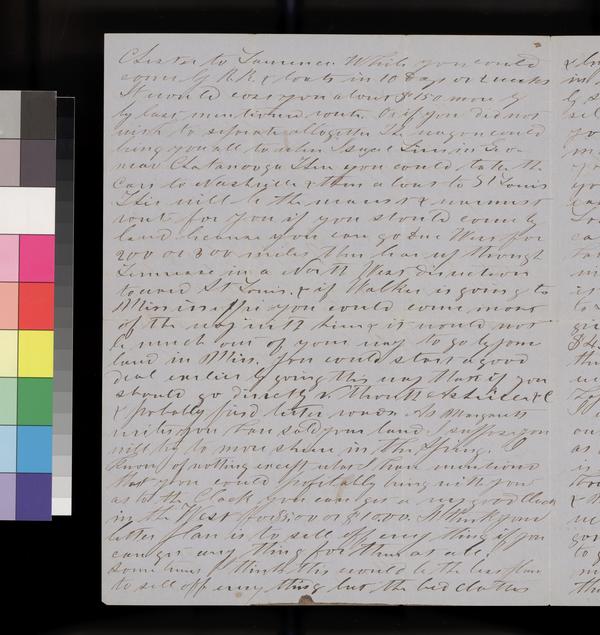 Chester to Lawrence. While you could
come by R.R. & boats in 10 days or 2 weeks
It would cost you about $150 money
by last mentioned route. Or if you did not
wish to separate altogether the wagon could
bring you all to where Isaac lives in Geo.
near Chatanooga then you could take the
Cars to Nashville & then a boat to St Louis
This will be the nearest & warmest
route for you if you should come by
land because you can go due West for
200 or 300 miles then bear up through
Tennessee in a North West direction
toward St Louis. & if Walker is going to
Mississippi you could come most
of the way with him & it would not
be much out of your way to go by some
land in Miss. You could start a good
deal earlier by going this way than if you
should go directly through Asheville &c
& probably find better roads. As Margaret
writes you have sold your land I suppose you
will be to move them in the Spring. I
know of nothing except what I have mentioned
that you could profitably bring with you
as to the Clock you can get a very good clock
in the West for $3.00 or $4.00. I think your
better plan is to sell off every thing if you
can get any thing for them at all.
Sometimes I think this would be the best plan
to sell off every thing but the bed clothes